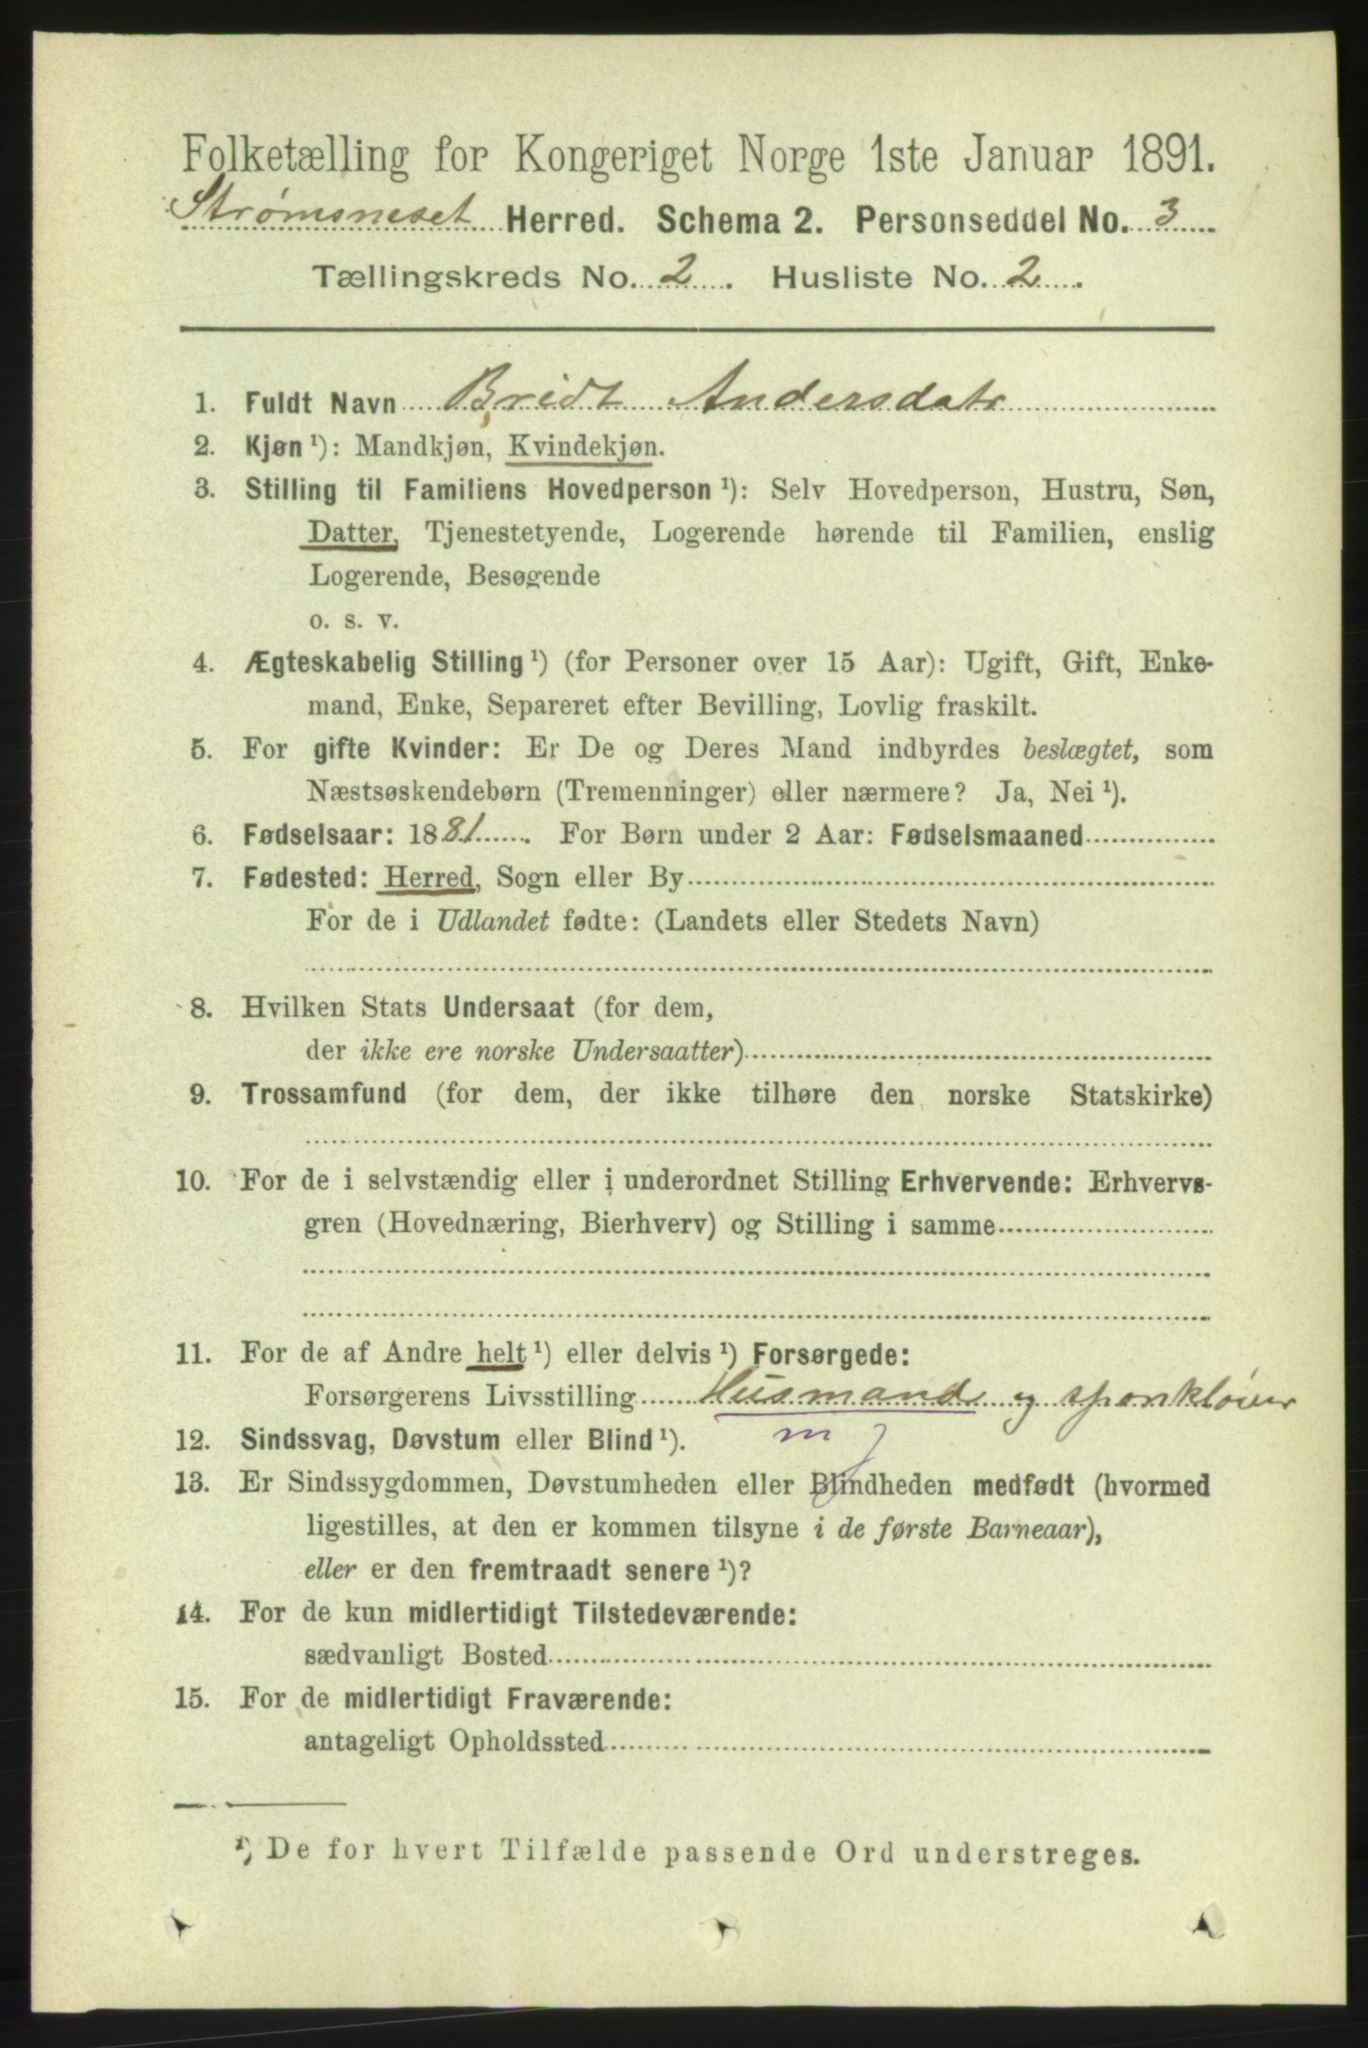 Folketælling for Kongeriget Norge 1ste Januar 1891.
Strømsneset Herred. Schema 2. Personseddel No. 3
Tællingskreds No. 2. Husliste No. 2.
1. Fuldt Navn Bridt Andersdatr
2. Kjøn ¹): Mandkjøn, Kvindekjøn.
3. Stilling til Familiens Hovedperson ¹): Selv Hovedperson, Hustru, Søn,
Datter, Tjenestetyende, Logerende hørende til Familien, enslig
Logerende, Besøgende
o. s. v.
4. Ægteskabelig Stilling ¹) (for Personer over 15 Aar): Ugift, Gift, Enke-
mand, Enke, Separeret efter Bevilling, Lovlig fraskilt.
5. For gifte Kvinder: Er De og Deres Mand indbyrdes beslægtet, som
Næstsøskendebørn (Tremenninger) eller nærmere? Ja, Nei ¹).
6. Fødselsaar: 1881. For Børn under 2 Aar: Fødselsmaaned
7. Fødested: Herred, Sogn eller By
For de i Udlandet fødte: (Landets eller Stedets Navn)
8. Hvilken Stats Undersaat (for dem,
der ikke ere norske Undersaatter)
9. Trossamfund (for dem, der ikke tilhøre den norske Statskirke)
10. For de i selvstændig eller i underordnet Stilling Erhvervende: Erhvervs-
gren (Hovednæring, Bierhverv) og Stilling i samme
11. For de af Andre helt ¹) eller delvis ¹) Forsørgede:
Forsørgerens Livsstilling Husmand og sponkløver
12. Sindssvag, Døvstum eller Blind ¹). m j
13. Er Sindssygdommen, Døvstumheden eller Blindheden medfødt (hvormed
ligestilles, at den er kommen tilsyne i de første Barneaar),
eller er den fremtraadt senere ¹)?
14. For de kun midlertidigt Tilstedeværende:
sædvanligt Bosted
15. For de midlertidigt Fraværende:
antageligt Opholdssted
¹) De for hvert Tilfælde passende Ord understreges.